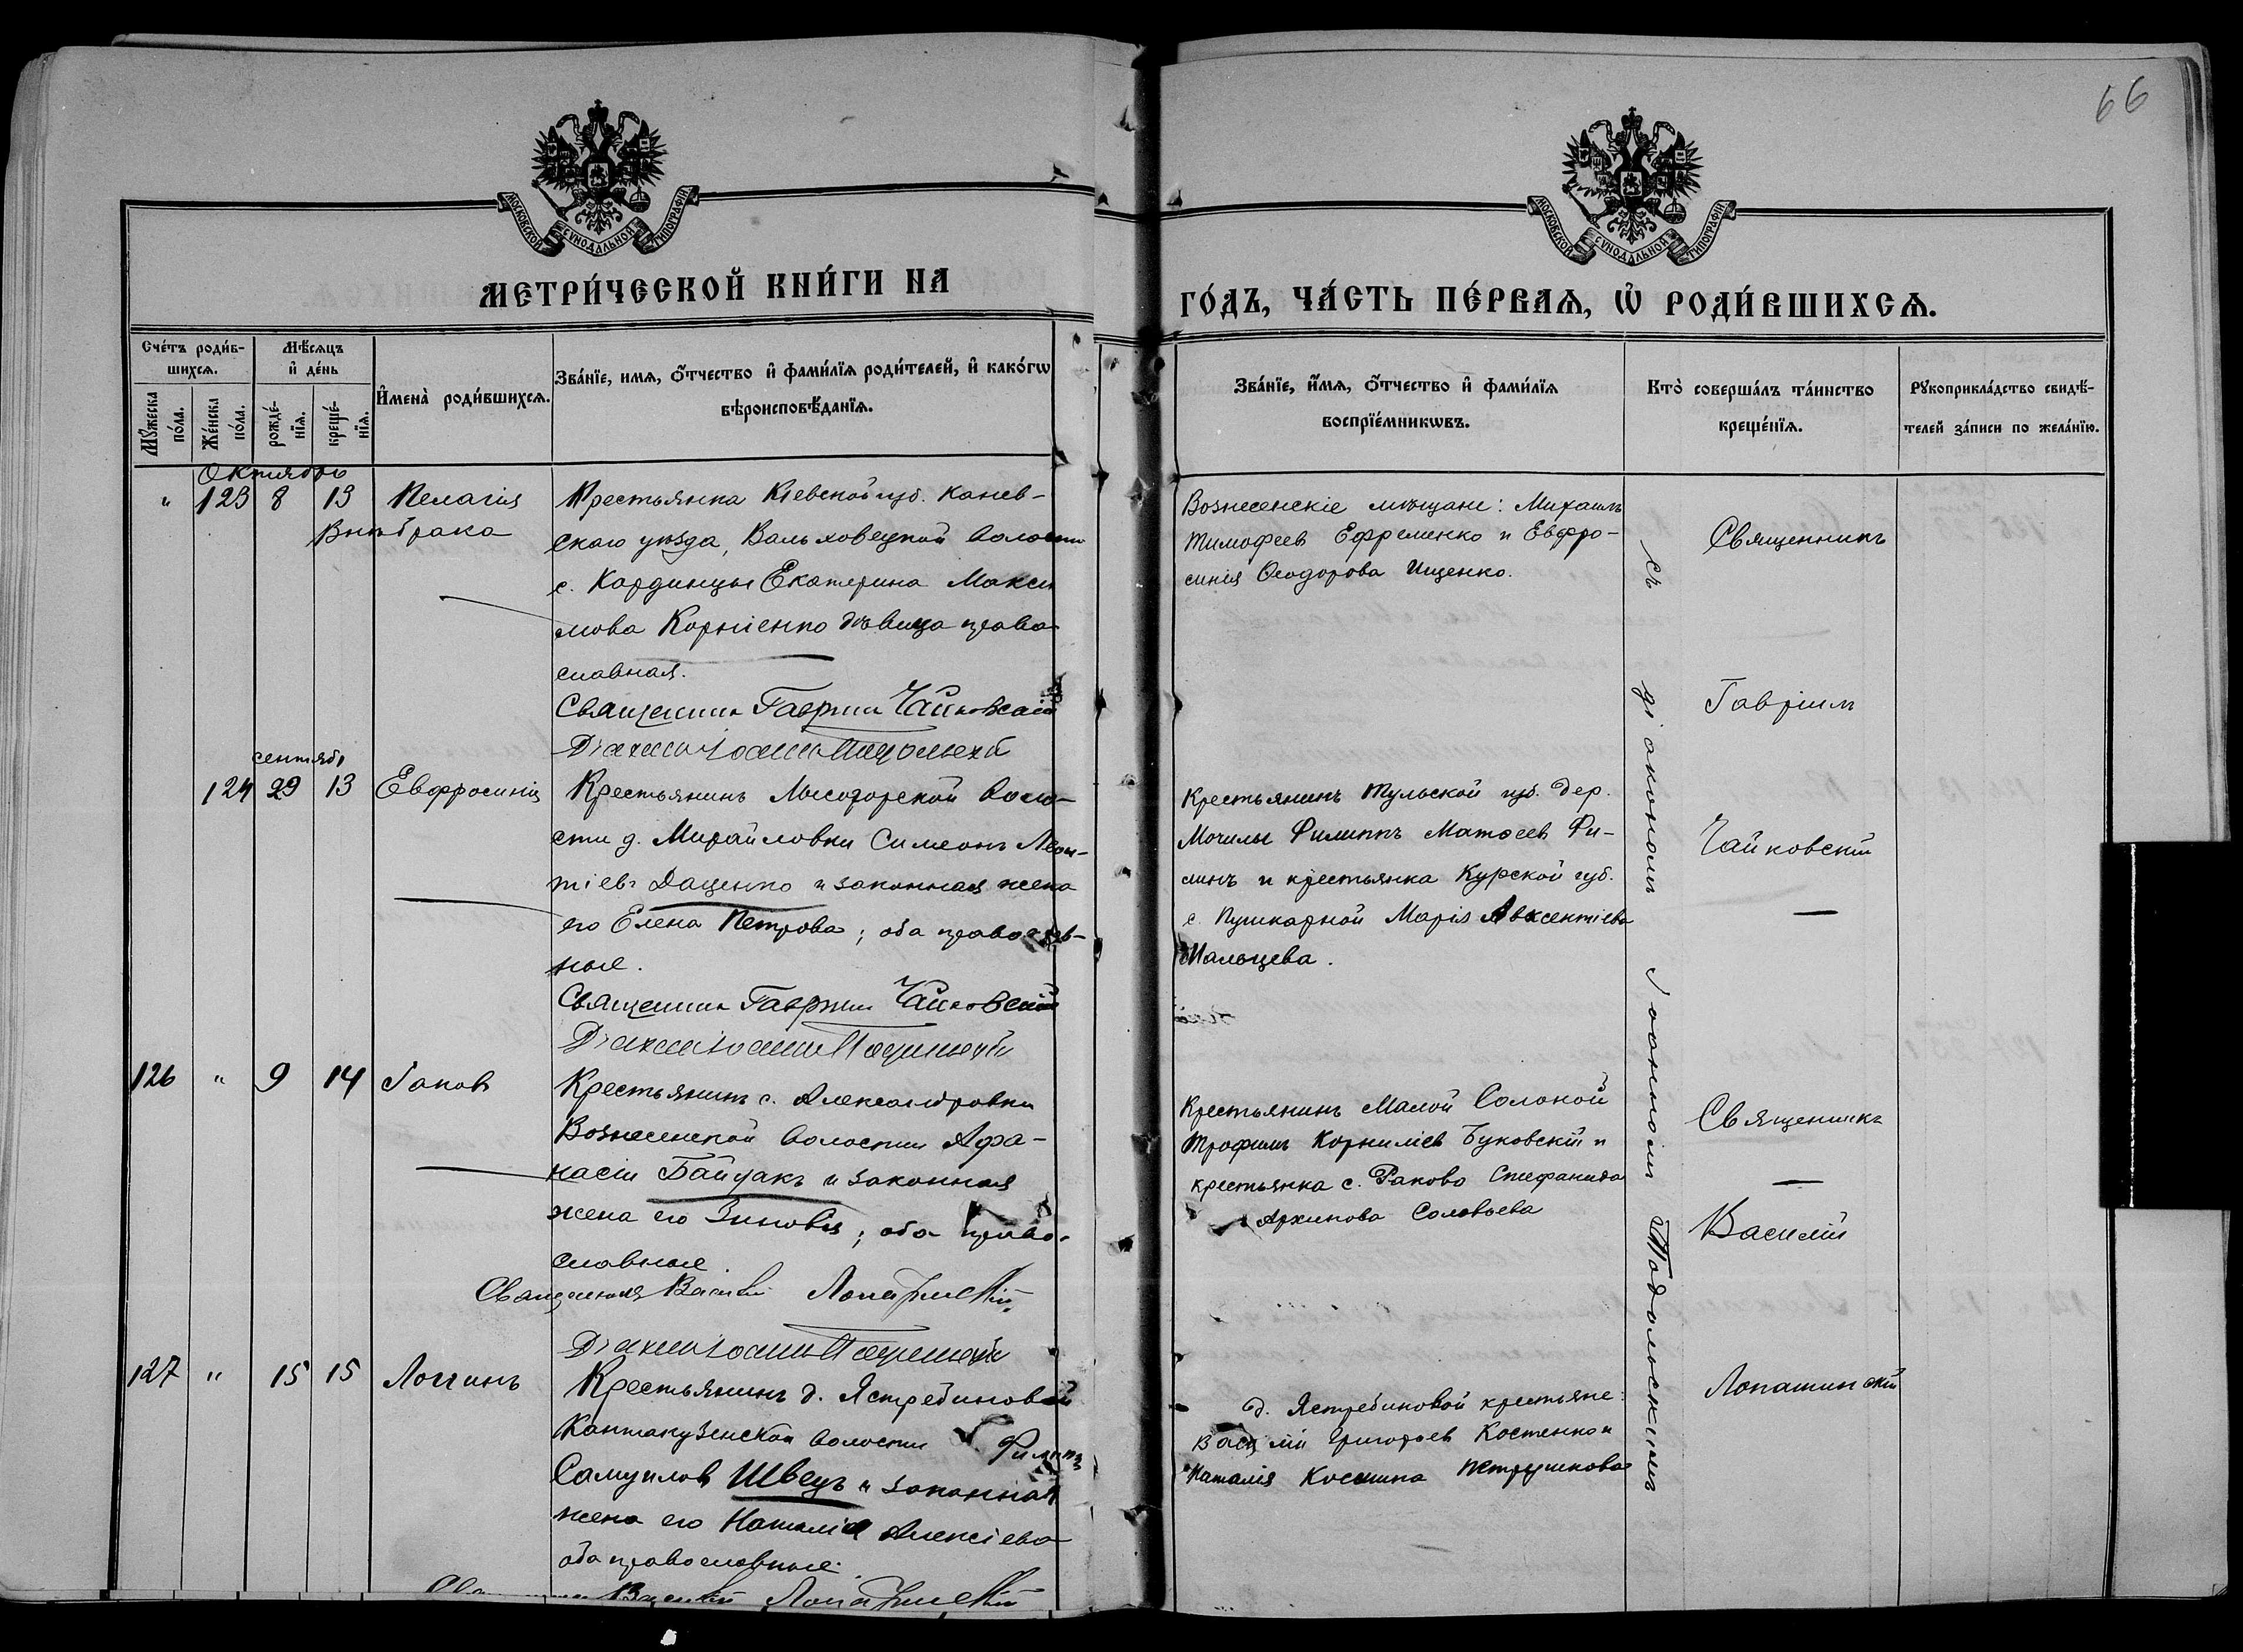 66
МОСКОВСКОЙ СѴНОДАЛЬНОЙ ТИПОГРАФІИ
МОСКОВСКОЙ СѴНОДАЛЬНОЙ ТИПОГРАФІИ
МЕТРИ́ЧЕСКОЙ КНИ́ГИ НА
ГО́ДЪ, ЧА́СТЬ ПЕ́РВАѦ, Ѡ҆ РОДИ́ВШИХСѦ.
Сче́тъ роди́в-
шихсѧ.
Мѣ́сѧцъ
и҆ де́нь
И҆мена̀ роди́вшихсѧ.
Зва́нїе, имѧ, ѻ҆́тчество и҆ фами́лїѧ роди́телей, и҆ како́гѡ
вѣроисповѣ́данїѧ.
Мꙋ́жеска
по́ла.
Же́нска
по́ла.
рожде́-
нїѧ.
креще́-
нїѧ.
Зва́нїе, и҆́мѧ, ѻ҆́тчество и҆ фами́лїѧ
воспрїе́мникѡвъ.
Кто̀ соверша́лъ та́инство
креще́нїѧ.
Рꙋкоприкла́дство свидѣ́-
телей за́писи по жела́нїю.
Октябрь
" 123 8 13 Пелагія
Внѣ брака
Крестьянка Кіевской губ. Канев-
скаго уѣзда, Вальховецкой волости
с. Кардинцы Екатерина Макси
мова Корніенко дѣвица право
славная.
Священник Гавриил Чайковскій
Діакон Іоанн Подольскій
Вознесенскіе мѣщане: Михаилъ
Тимофеев Ефременко и Евфро-
синія Ѳеодорова Ищенко.
Священникъ
Гавріилъ
Чайковскій
сентяб
124 29 13 Евфросинія
Крестьянинъ Лысогорской воло-
сти д. Михайловки Симеонъ Леон-
тіевъ Даценко и законная жена
его Елена Петрова; оба православ-
ные.
Священник Гавриил Чайковскій
Діакон Іоанн Подольскій
Крестьянинъ Тульской губ. дер.
Мочилы Филиппъ Матѳеев Фи-
линъ и крестьянка Курской губ.
с. Пушкарной Марія Авксентіева
Мальцева.
126 " 9 14 Іаков
Крестьянинъ с. Александровки
Вознесенской волости Афа-
насій Байдакъ и законная
жена его Зиновія; оба право-
славные.
Священник Василій Лопатинскій
Діакон Іоанн Подольскій
Крестьянинъ Малой Солоной
Трофимъ Корниліев Буковскій и
крестьянка с. Раково Стефанида
Архипова Соловьева
Священникъ
Василій
Лопатинскій
127 " 15 15 Логгинъ
Крестьянинъ д. Ястребиновой
Кантакузенской волости Филиппъ
Самуилов Швецъ и законная
жена его Наталія Алексіева
оба православные.
Василій Лопатинскій
д. Ястребиновой крестьяне:
Василій Григорьев Костенко и
Наталія Космина Петрушкова
съ діакономъ Іоанномъ Подольскимъ